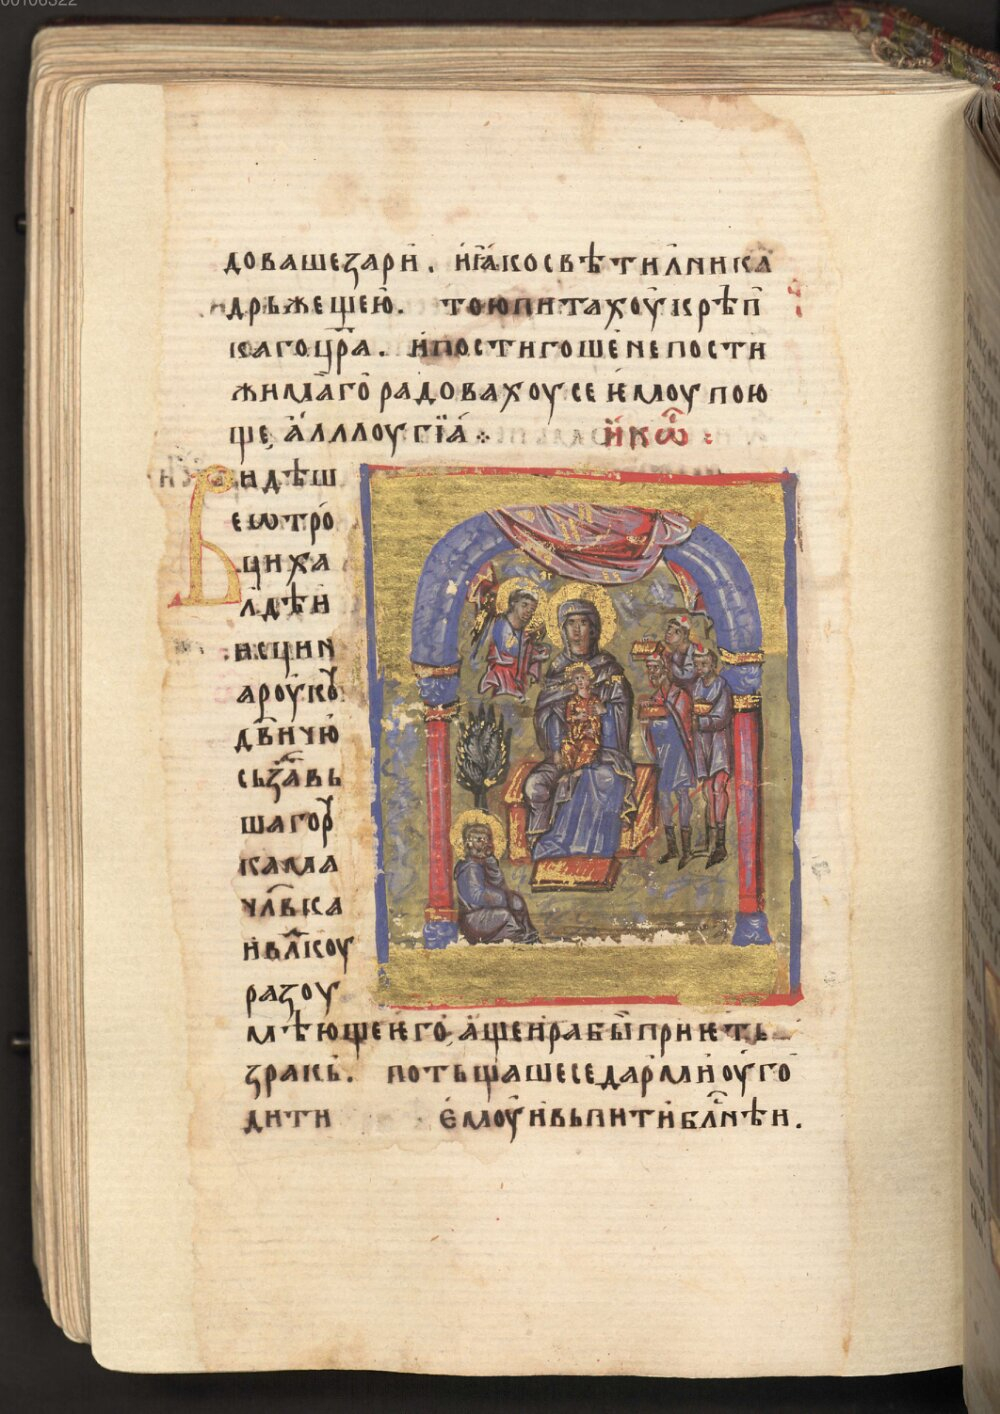 00106322
доваше зарѝ . и҆ ꙗ҆ко свѣтилника
дрьжеще ю҆ . тою питахоу҆ крѣп
каго цр҃а . и҆ постигоше не пости
жимаго радовахоу се ѥ҆моу пою
ще, а҆ллилоугїа҆ ⁘ и҆кѡ҃ :
Видѣш
е ѡтро
ци ха
лдѣи
исции
а роукꙋ
дв҃ичю
съзⷣавъ
шаго роу
кама
чл҃вка
и вл҃коу
разоу
мѣюще ѥго, а҆ще и҆ рабы҆ приѥть
зракь . потьщаше се дарми҆ оу҆го
дити ѥ҆моу҆ и вьпити бл҃гⷭнѣи .